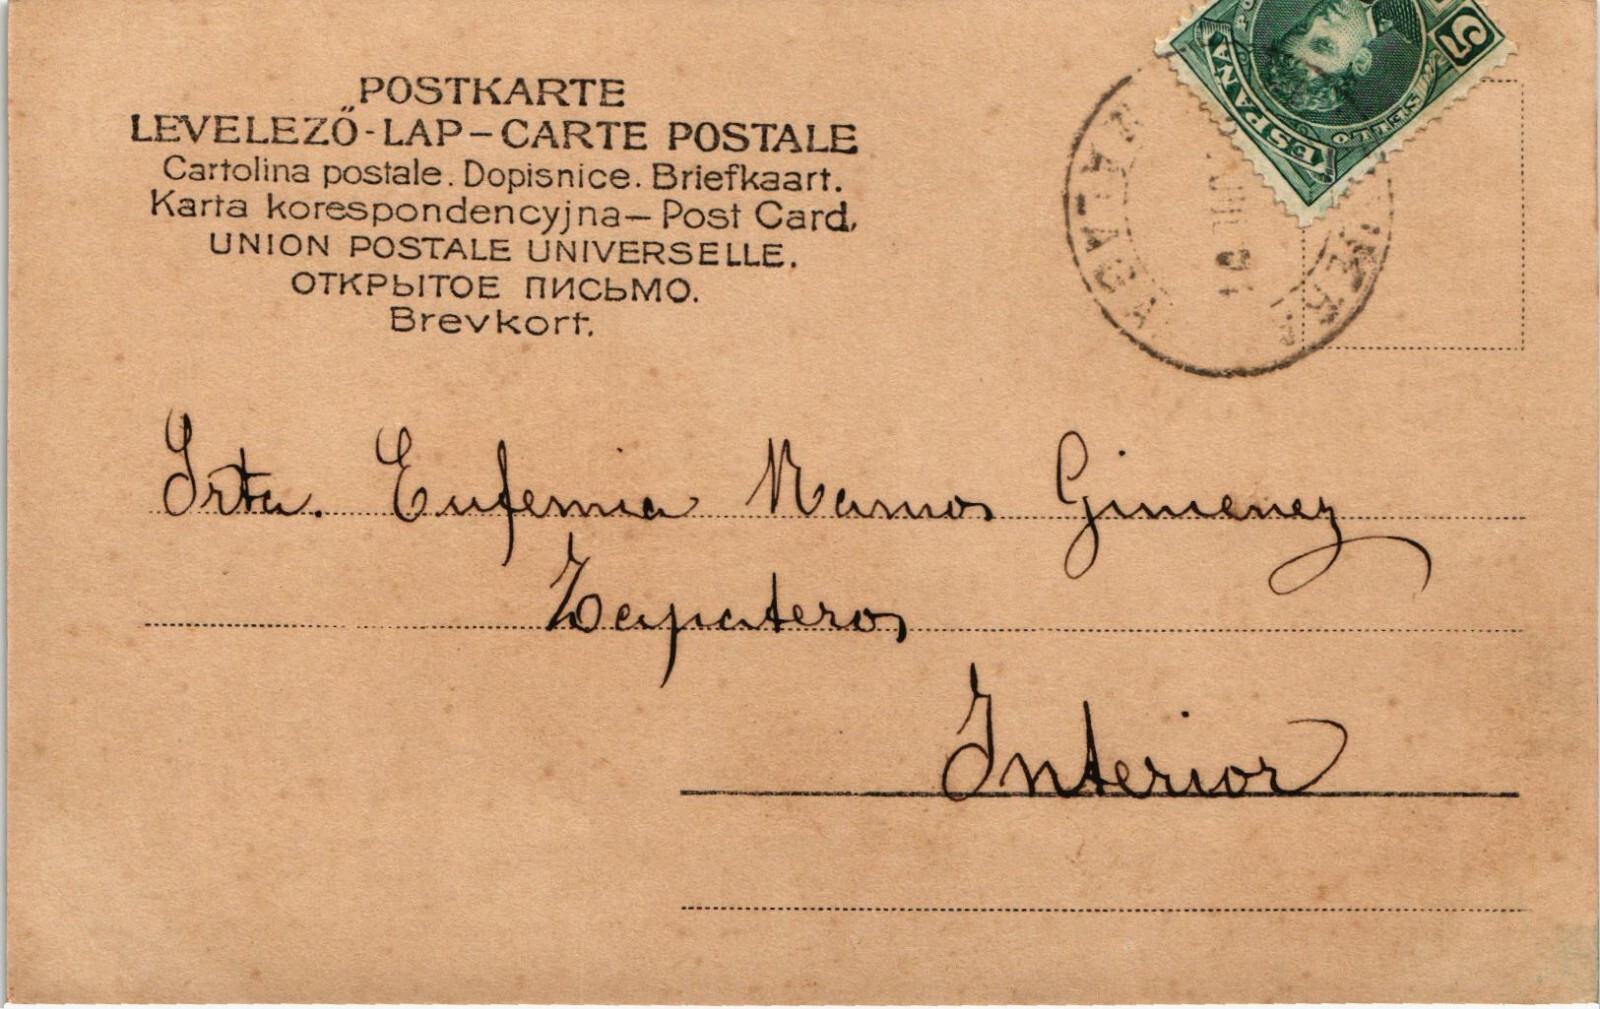 POSTKARTE
LEVELEZŐ-LAP-CARTE POSTALE
Cartolina postale. Dopisnice. Briefkaart.
Karta korespondencyjna-Post Card.
UNION POSTALE UNIVERSELLE.
ОТКРЫТОЕ ПИСЬМО.
Brevkort.
ESPAÑA
5
Srta. Eufemia Ramos Gimenez
Zapateros
Interior